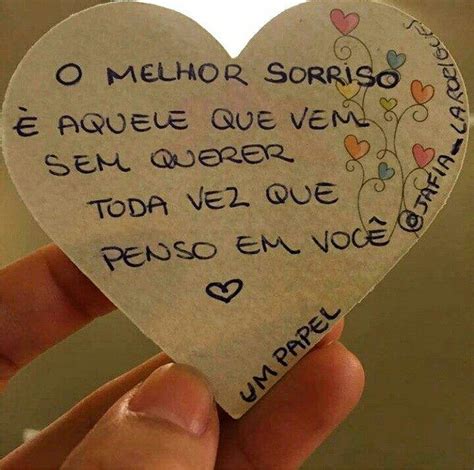 O MELHOR SORRISO
È AQUELE QUE VEM
SEM QUERER
TODA VEZ QUE
PENSO EM VOCÊ
UM PAPEL